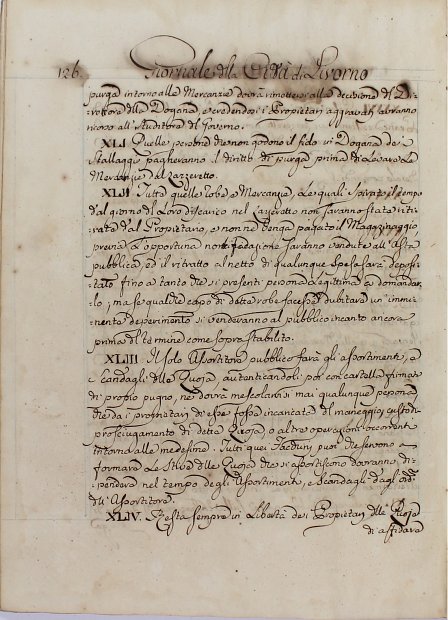 126. Giornale della Città di Livorno
purga intorno alle Mercanzie dovrà rimettersi alla decisione del Di-
rettore della Dogana, e credendosi i Proprietarj aggravati avranno
ricorso all'Auditore del Governo.
XLI. Quelle persone che non godono il fido in Dogana de
Stallaggj pagheranno il diritto di purga prima di Levare Le
Mercanzie dal Lazzeretto.
XLII. Tutte quelle robe e Mercanzie, Le quali spirato il tempo
dal giorno del Loro discarico nel Lazzeretto non saranno state riti-
rate dal Proprietario, e non ne venga pagato il Magazzinaggio
previa L'opportuna notificazione saranno vendute all'Asta
pubblica, ed il ritratto al netto di qualunque spesa sarà deposi-
tato fino a tanto che si presenti persona Legittima a domandar-
lo; ma se qualche capo di dette robe facesse dubitare un immi-
nente deperimento si venderanno al pubblico incanto ancora
prima del termine come sopra stabilito.
XLIII. Il solo Assortitore pubblico farà gli assortimenti, e
Scandagli delle Quoja, autenticandoli poi con cartella firmata
di proprio pugno, nè dovrà mescolarsi mai qualunque persona
che da i proprietarj di esse fosse incaricata del maneggio, custodia
prosciugamento di dette Quoja, o altre operazioni occorrenti
intorno alle medesime. Tutti quei Facchini poi che servono a
formare Le Stive delle Quoja che si assortiscono dovranno di-
pendere nel tempo degli Assortimenti, e Scandagli dagli ordini
dell'Assortitore.
XLIV. Resta sempre in Libertà dei Proprietarj delle Quoja
di affidare